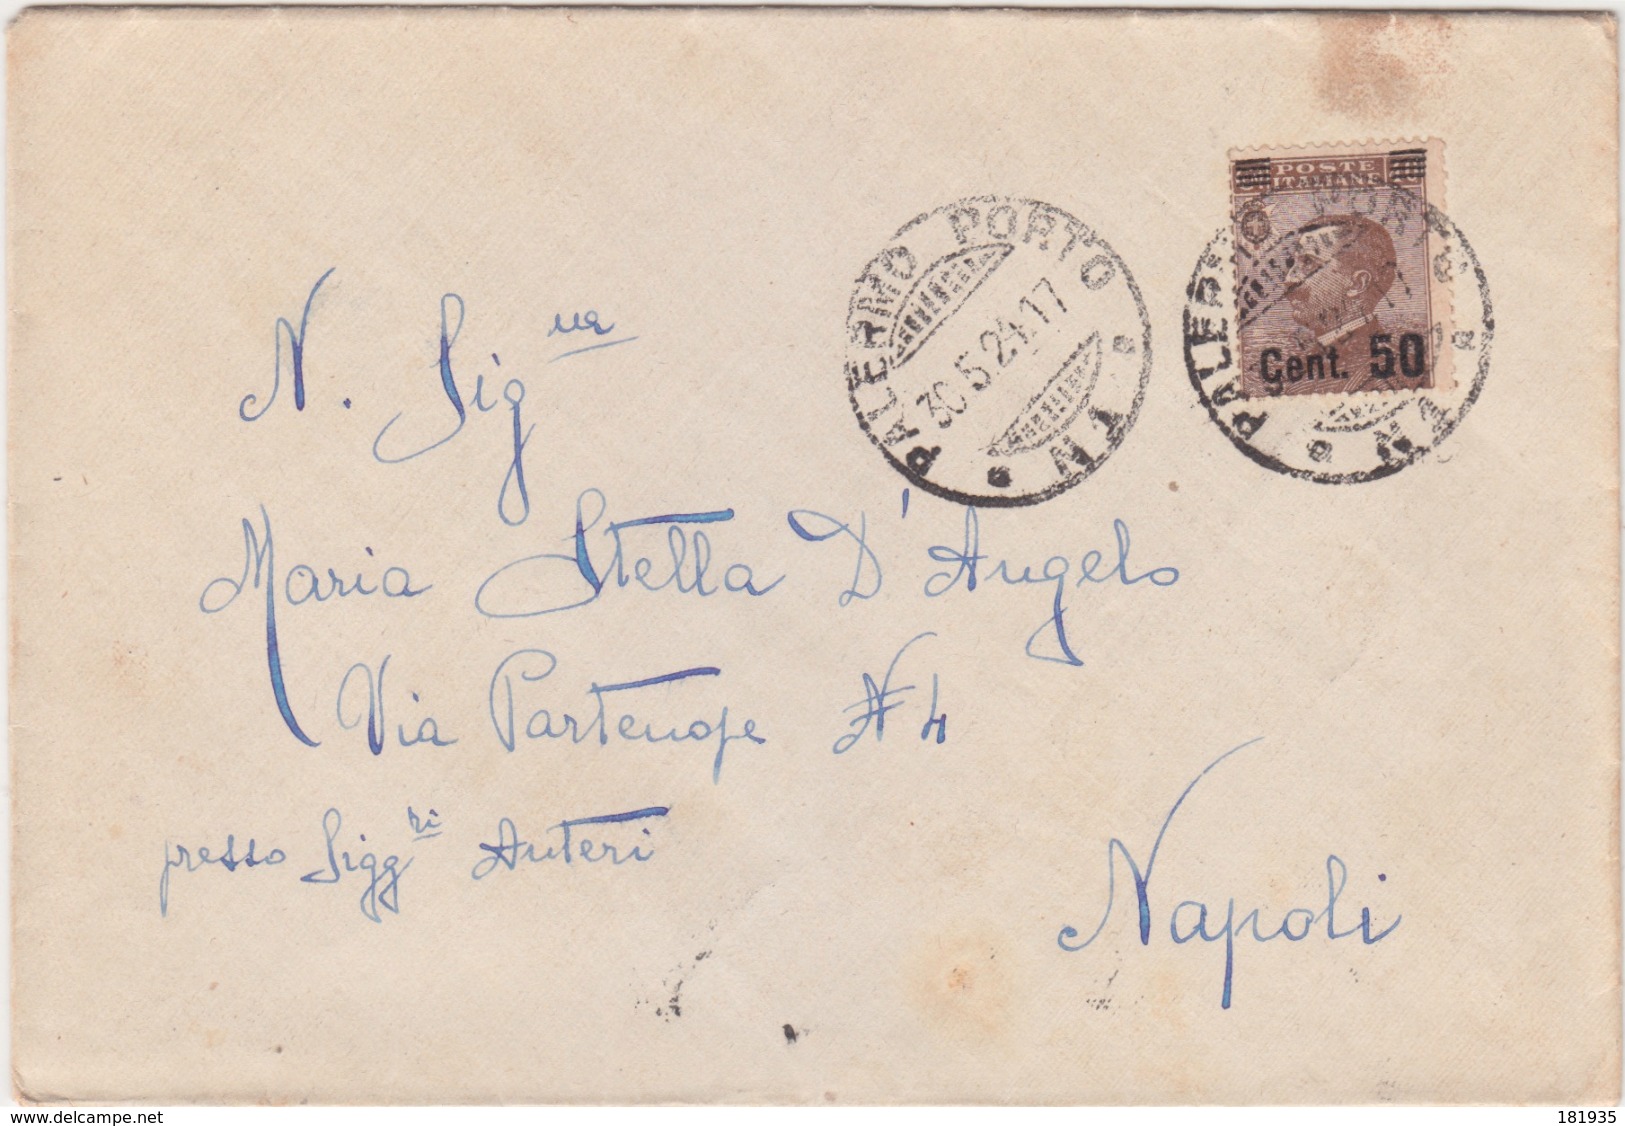 POSTE
ITALIANE
Cent. 50
PALERMO PORTO
30.5.24.17
N. Sig.na
Maria Stella D'Angelo
Via Partenope N 4
presso Sigg.ri Auteri
Napoli
www.delcampe.net
181935